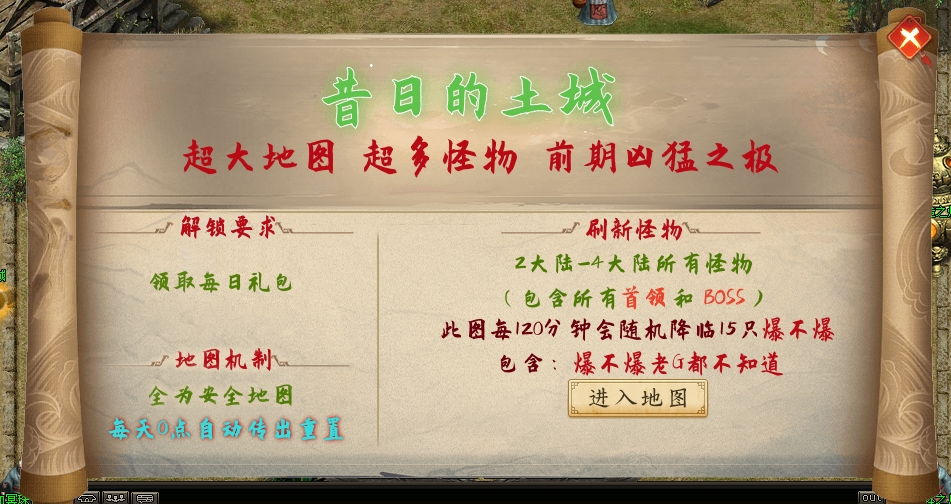 昔日的土城
超大地图 超多怪物 前期凶猛之极
解锁要求
领取每日礼包
地图机制
全为安全地图
每天0点自动传出重置
刷新怪物
2大陆-4大陆所有怪物
（包含所有首领和BOSS）
此图每120分钟会随机降临15只爆不爆
包含：爆不爆老G都不知道
进入地图